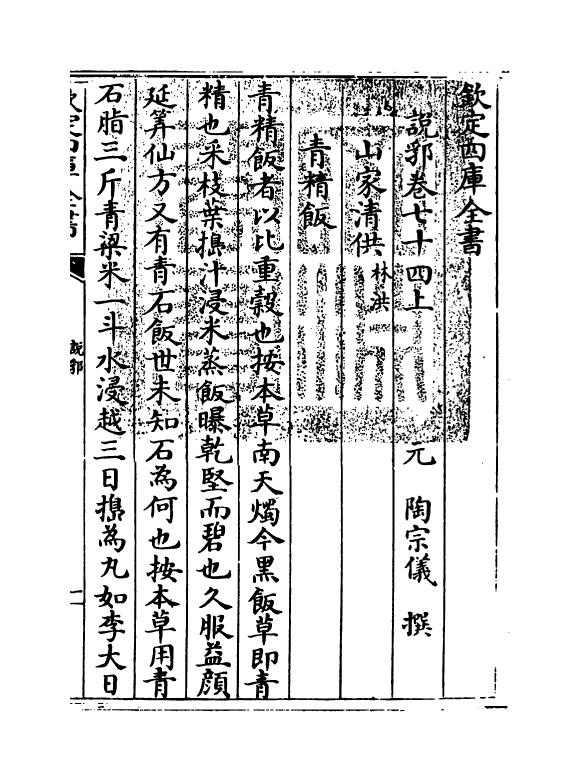 欽定四庫全書
說郛卷七十四上 元 陶宗儀 撰
山家清供 林洪
青精飯
青精飯者以比重穀也按本草南天燭今黑飯草即青
精也采枝葉搗汁浸米蒸飯曝乾堅而碧也久服益顔
延筭仙方又有青石飯世未知石為何也按本草用青
石脂三斤青粱米一斗水浸越三日搗為丸如李大日
欽定四庫全書
說郛
一